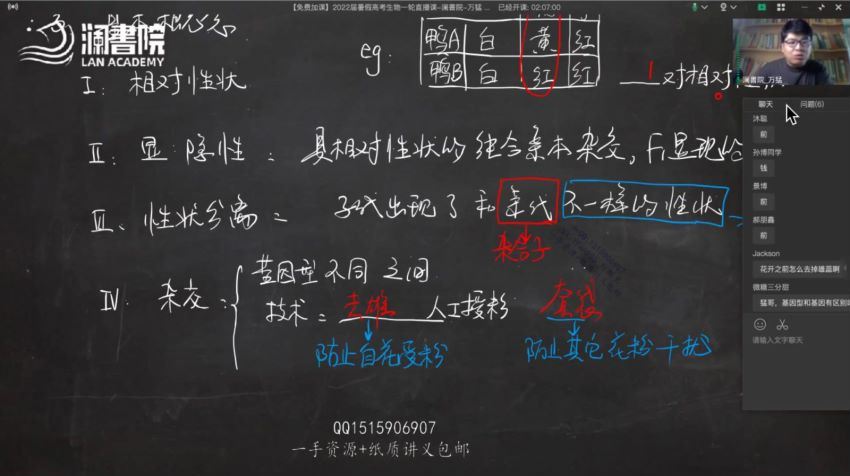 【免费加课】2022届暑假高考生物一轮直播课-澜書院-万猛 ... 已经开课: 02:07:00
澜書院
LAN ACADEMY
eg:
鸭A 白 黄 红
鸭B 白 红 红
1 对相对性
I: 相对性状
II: 显.隐性: 具相对性状的纯合亲本杂交,F₁显现的
III、性状分离= 子代出现了和亲代不一样的性状
杂合子
IV: 杂交:
基因型不同之间
技术= 去雄 人工授粉 套袋
防止自花受粉
防止其它花粉干扰
QQ1515906907
一手资源+纸质讲义包邮
澜書院_万猛
聊天 问题(6)
沐聪
前
孙博同学
钱
景博
前
郝朋鑫
前
Jackson
花开之前怎么去掉雄蕊啊
微糖三分甜
猛哥,基因型和基因有区别
请输入文字聊天